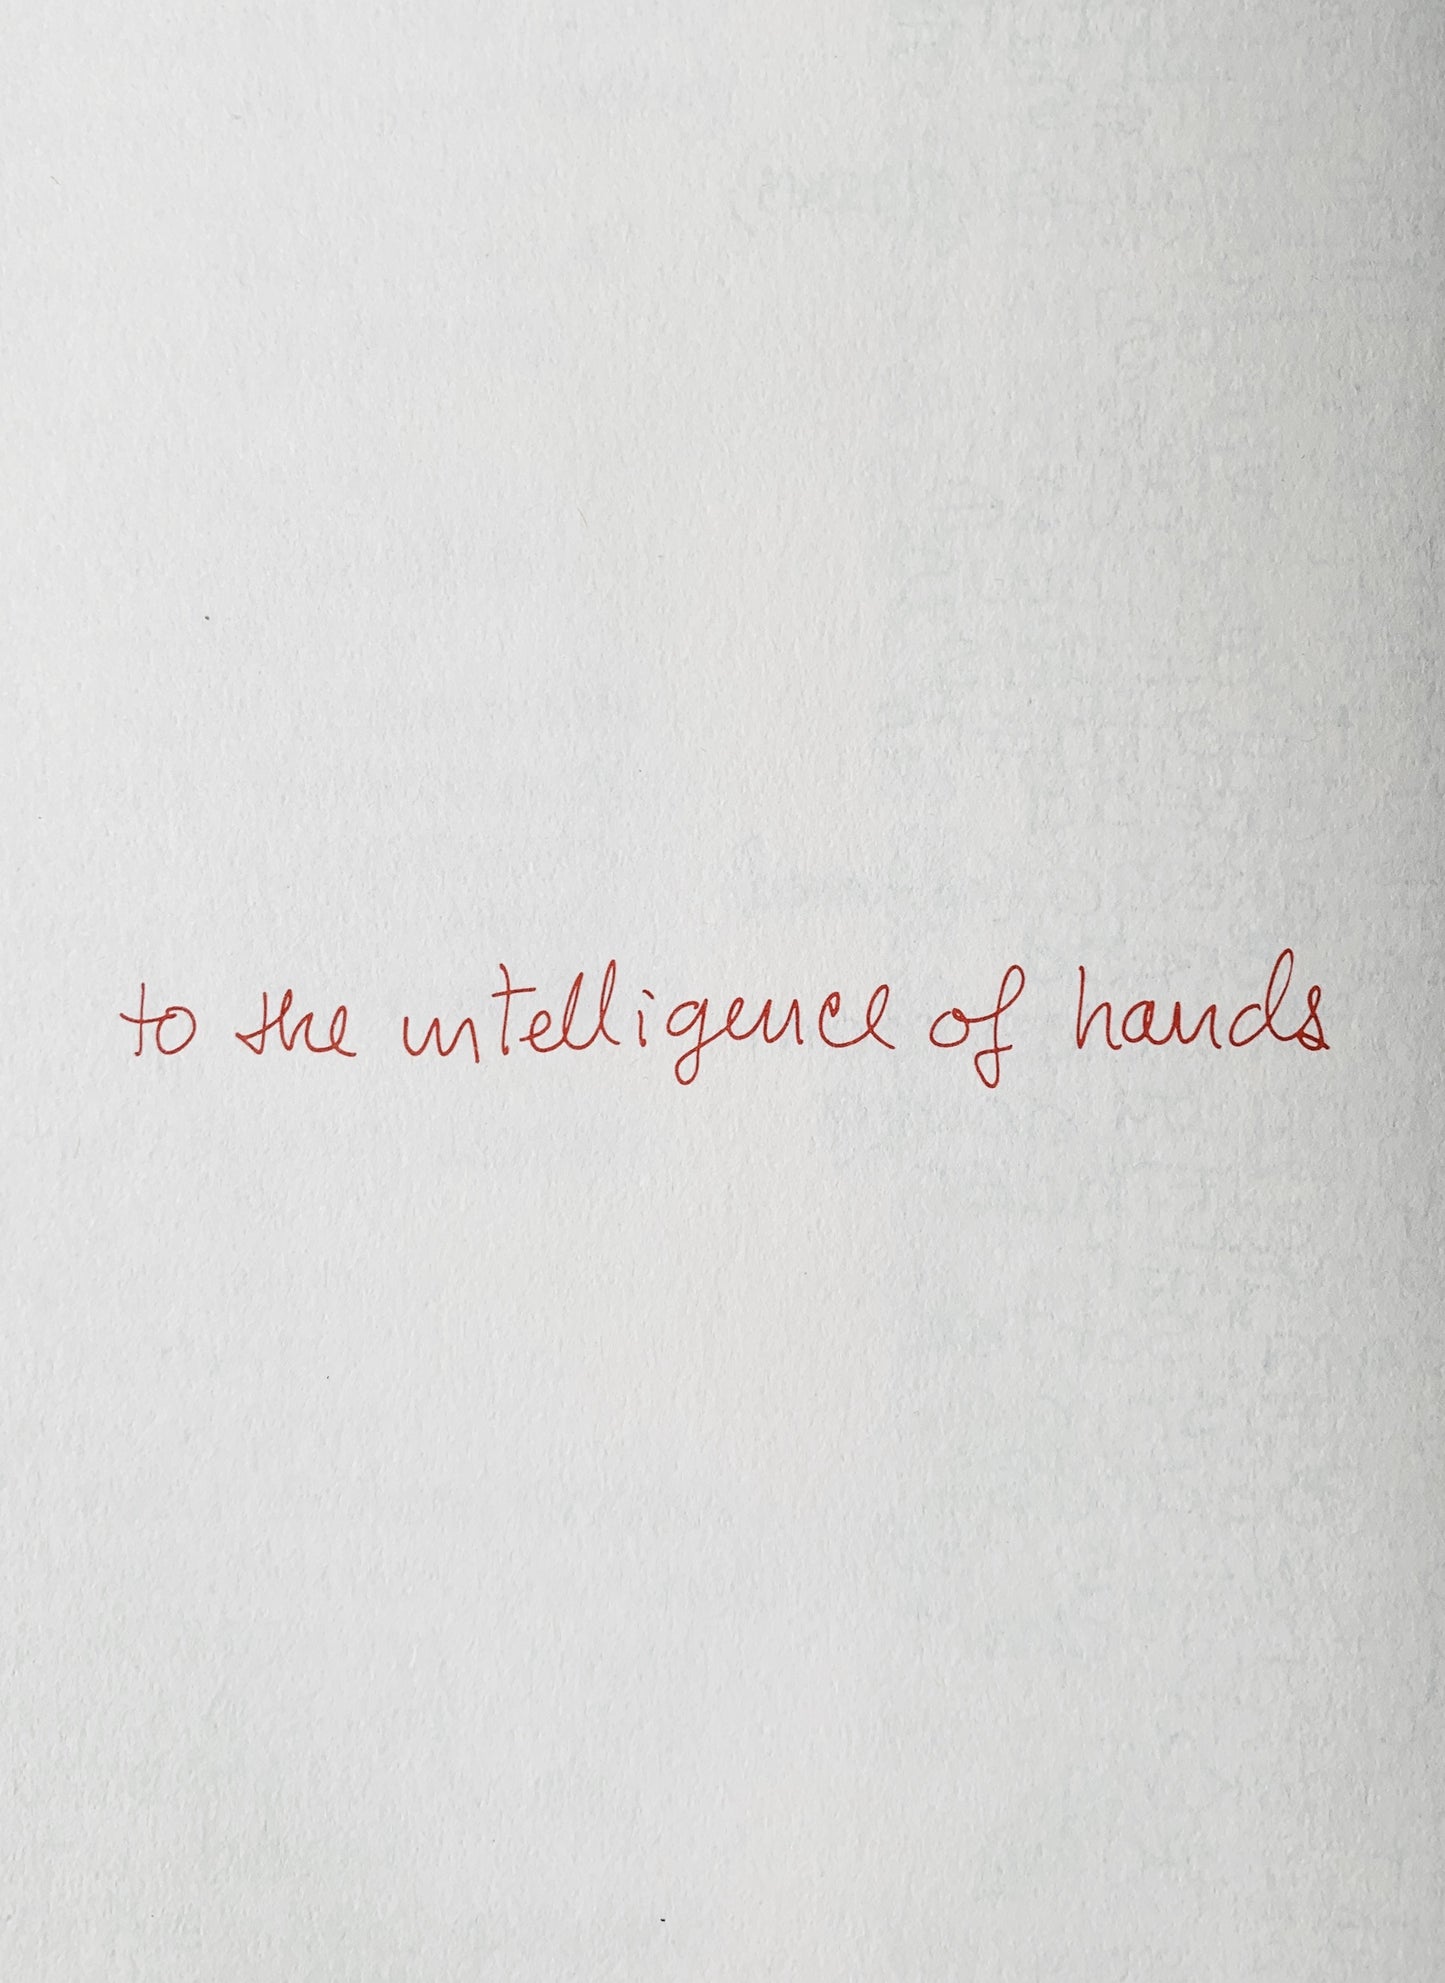 to the intelligence of hands